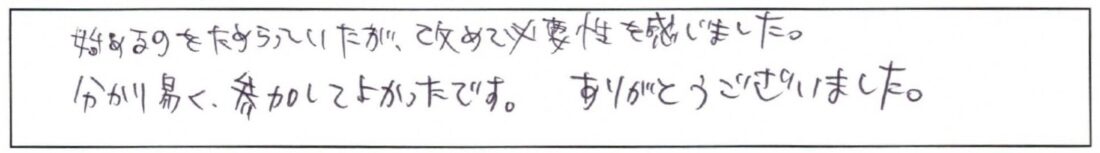 始めるのをためらっていたが、改めて必要性を感じました。
分かり易く、参加してよかったです。 ありがとうございました。